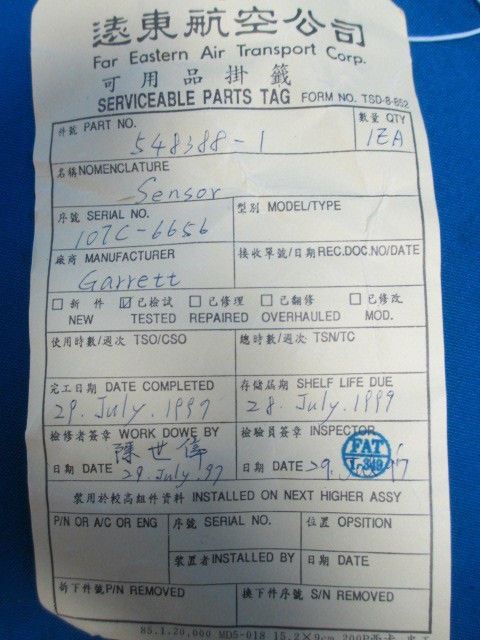 遠東航空公司
Far Eastern Air Transport Corp.
可用品掛籤
SERVICEABLE PARTS TAG FORM NO. TSD-8-652
件號 PART NO. 數量 QTY
548388-1 1EA
名稱 NOMENCLATURE
Sensor
序號 SERIAL NO. 型別 MODEL/TYPE
107C-6656
廠商 MANUFACTURER 接收單號/日期 REC.DOC.NO/DATE
Garrett
□ 新件 ☑ 已檢試 □ 已修理 □ 已翻修 □ 已修改
NEW TESTED REPAIRED OVERHAULED MOD.
使用時數/週次 TSO/CSO 總時數/週次 TSN/TC
完工日期 DATE COMPLETED 存儲屆期 SHELF LIFE DUE
29. July. 1997 28. July. 1999
檢修者簽章 WORK DOWE BY 檢驗員簽章 INSPECTOR
陳世偉 FAT
I-349
日期 DATE 29. July. 97 日期 DATE 29. 97
裝用於較高組件資料 INSTALLED ON NEXT HIGHER ASSY
P/N OR A/C OR ENG 序號 SERIAL NO. 位置 OPSITION
裝置者 INSTALLED BY 日期 DATE
拆下件號 P/N REMOVED 換下件序號 S/N REMOVED
85.1.20,000 MD5-018 15.2×9cm 200P